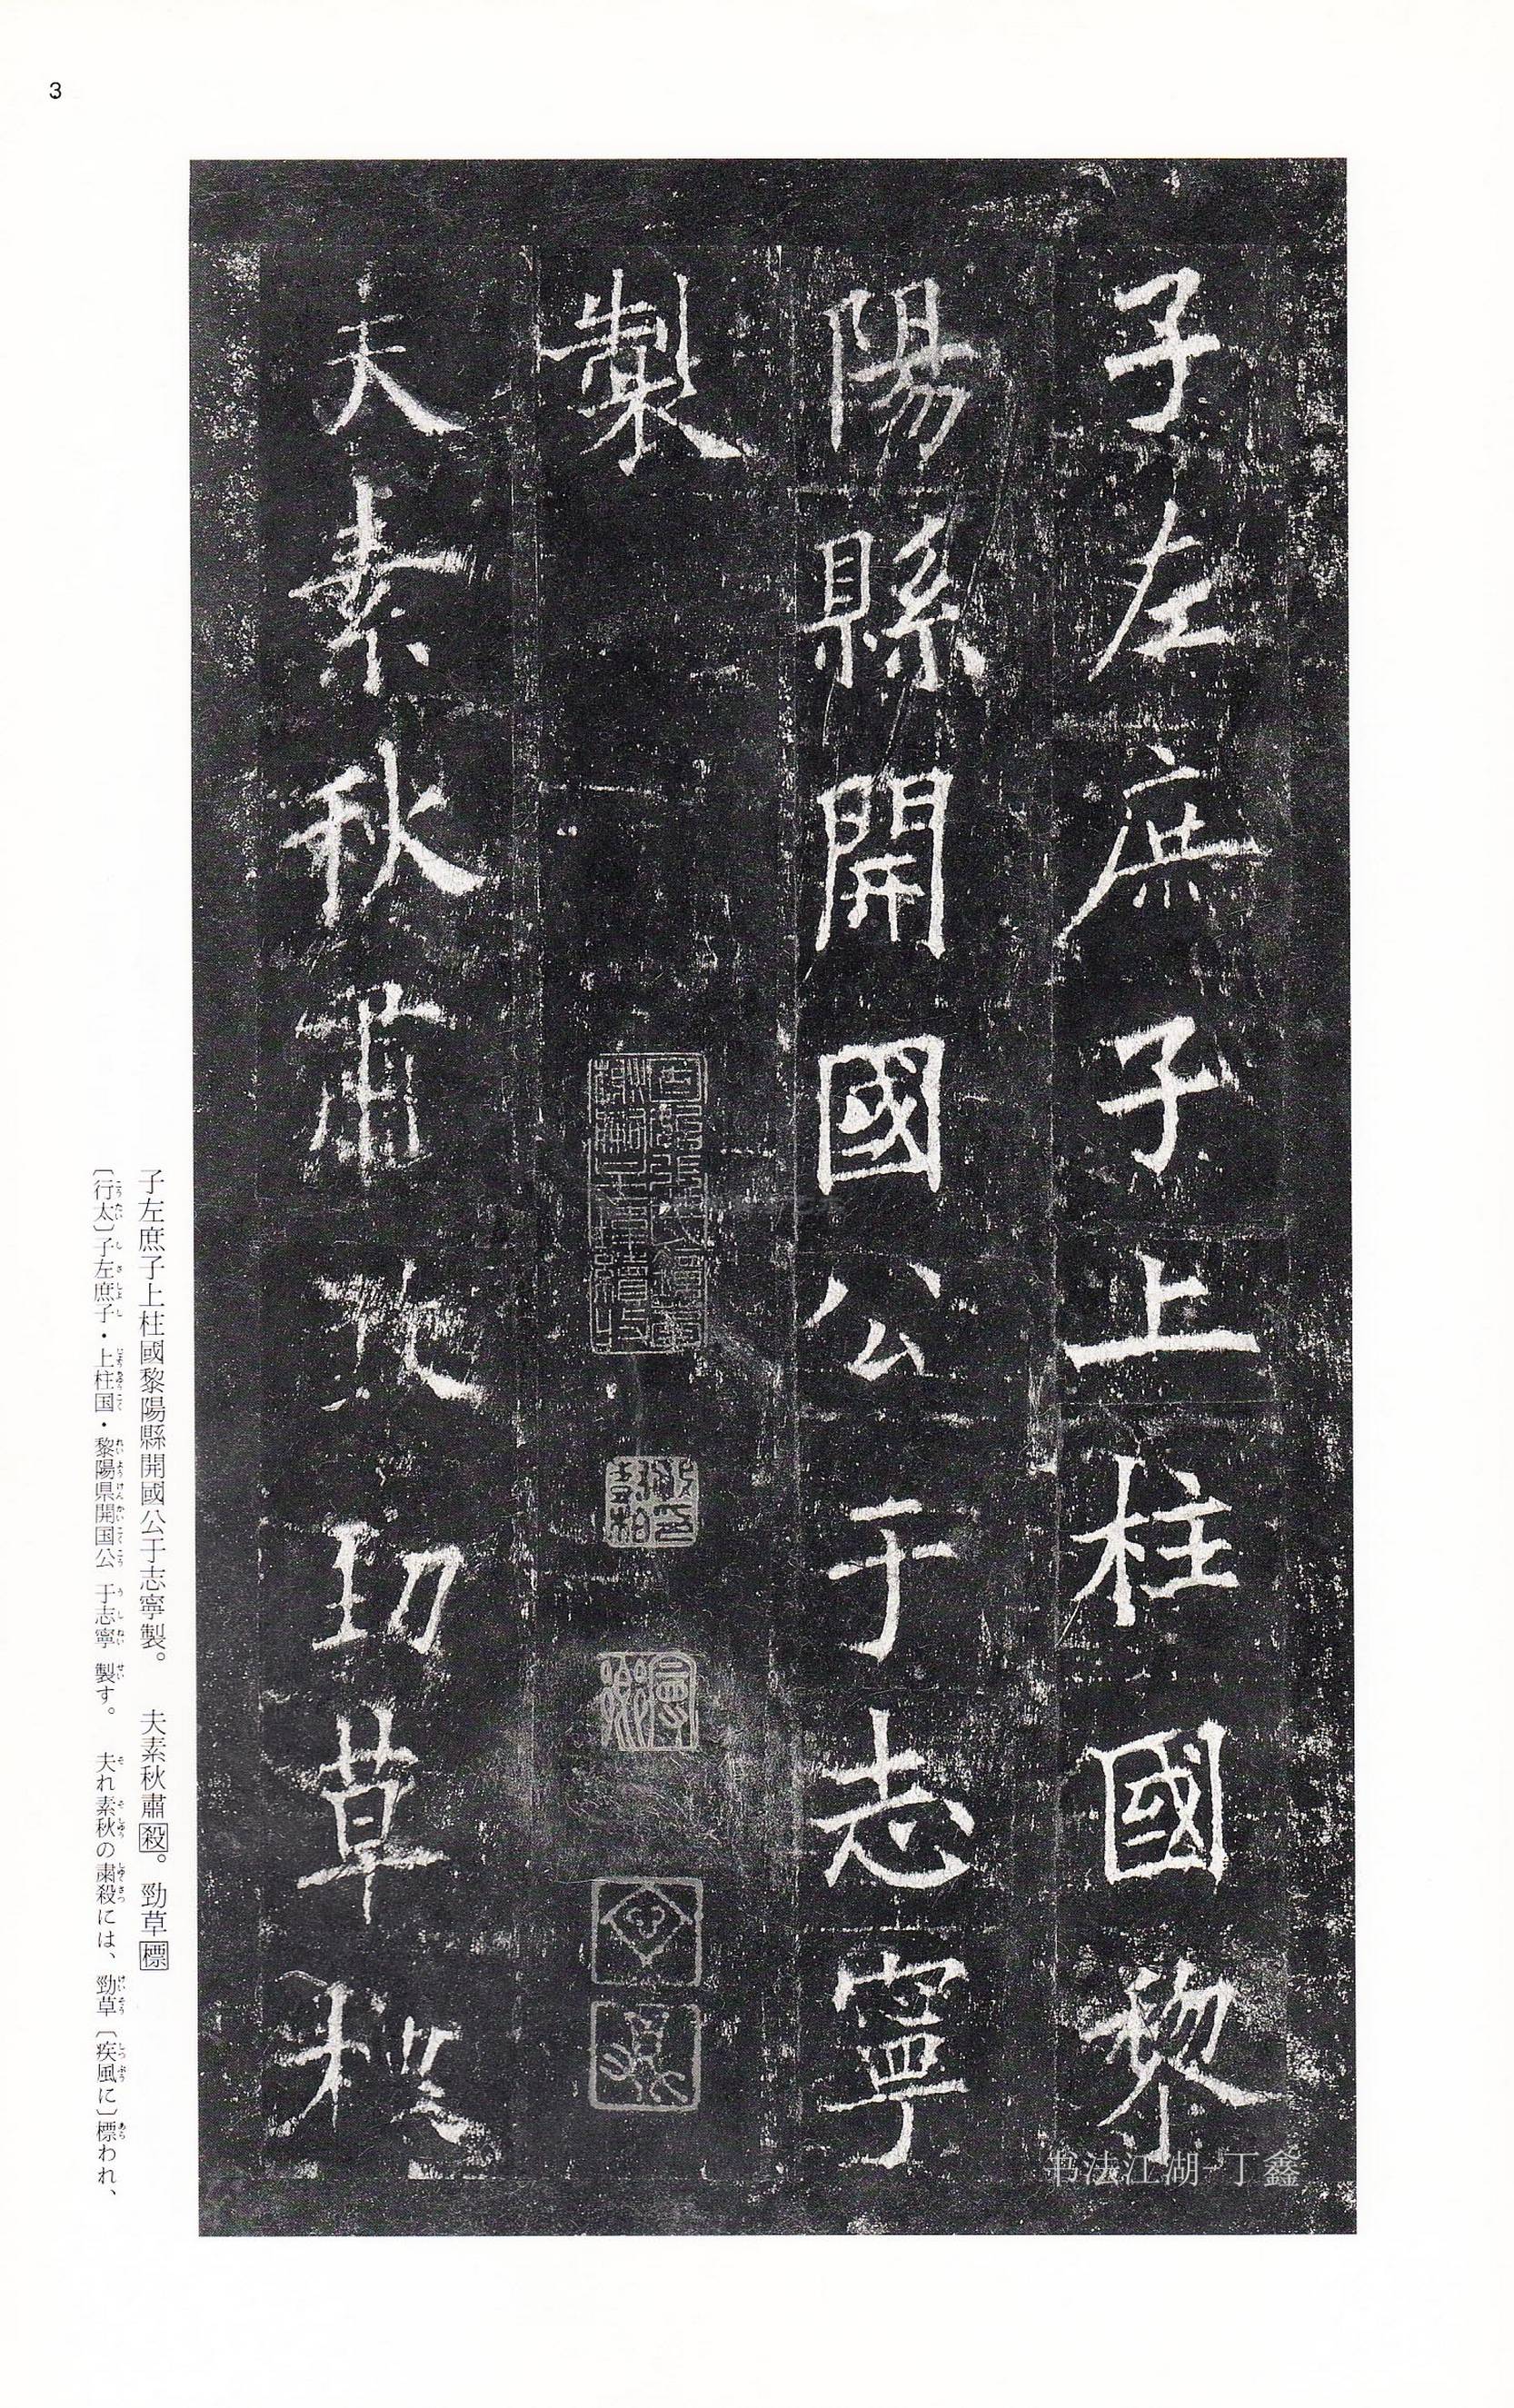 3
子左庶子上柱國黎
陽縣開國公于志寧
製
夫素秋肅
勁草標
子左庶子上柱國黎陽縣開國公于志寧製。　夫素秋肅殺。勁草標
〔行太〕子左庶子・上柱国・黎陽県開国公 于志寧 製す。　夫れ素秋の粛殺には、勁草〔疾風に〕標われ、
书法江湖-丁鑫